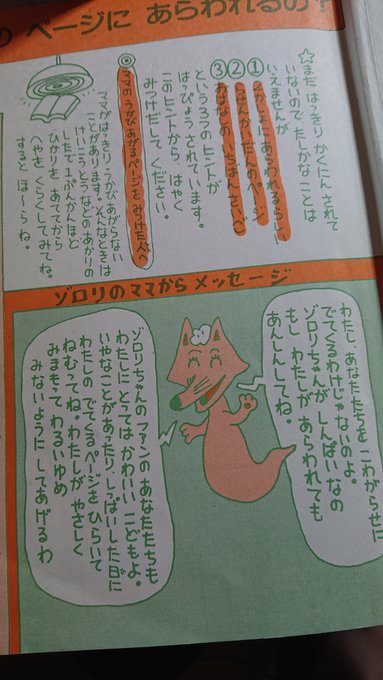 ページに あらわれるの?
☆まだはっきり かくにん されて
いないので たしかな ことは
いえませんが
①2かしょにあらわれるらしい
②らせんかいだんのページ
③おばけの
という3つのヒントが
はっぴょうされています。
このヒントから、はやく
みつけだして ください。
◎ママの うかびあがるページを みつけた人へ
ママがはっきり うかびあがらない
ことがあります。そんなときは
けいこうとうなどのあかりの
したで 1ぷんかんほど
ひかりを あててから
へやを くらくしてみてね。
すると ほ〜らね。
ゾロリのママから メッセージ
わたし、あなたたちを こわがらせに
でてくるわけじゃないのよ。
ゾロリちゃんが しんぱいなの
もし わたしが あらわれても
あんしんしてね。
ゾロリちゃんの ファンの あなたたちも
わたしに とっては かわいい こどもよ。
いやなことがあったり、しっぱいした日に
わたしの でてくるページを ひらいて
ねむってね。わたしが やさしく
みまもって わるいゆめ
みないように してあげるわ